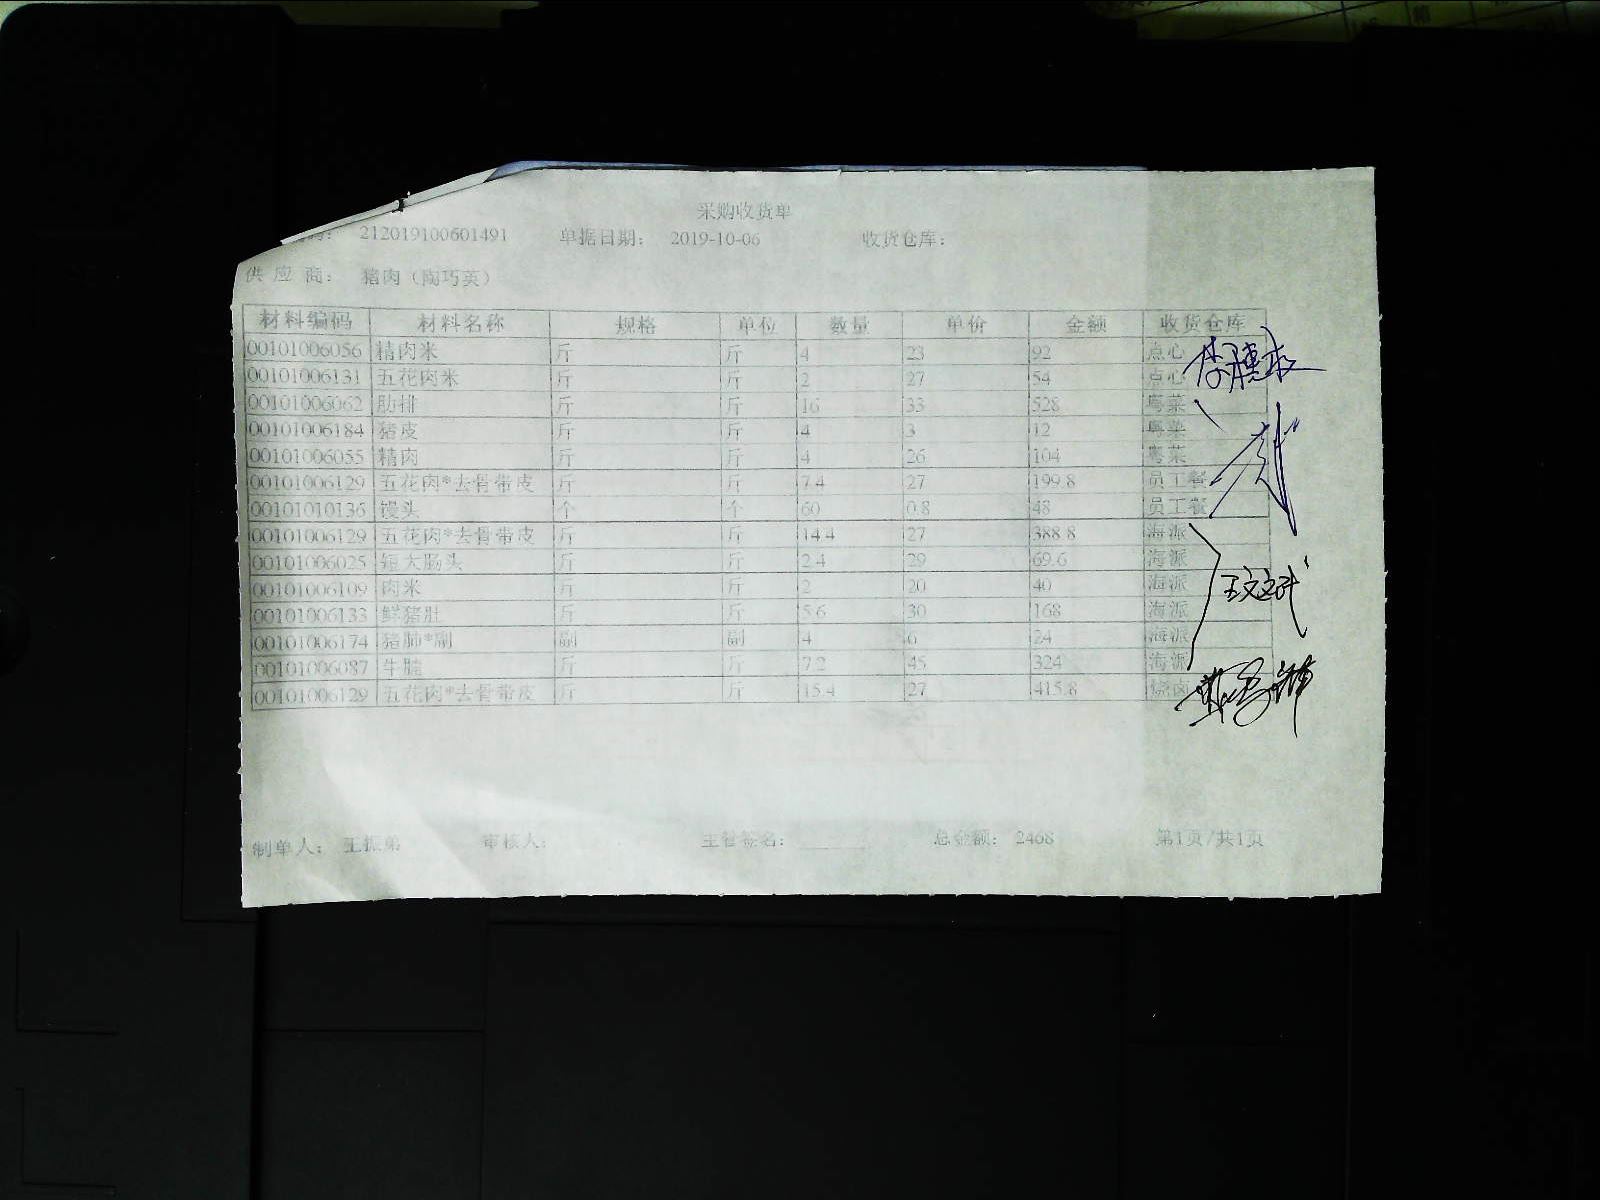 采购收货单
码： 212019100601491 单据日期： 2019-10-06 收货仓库：
供 应 商： 猪肉（陶巧英）
材料编码 材料名称 规格 单位 数量 单价 金额 收货仓库
00101006056 精肉米 斤 斤 4 23 92 点心
00101006131 五花肉米 斤 斤 2 27 54 点心
00101006062 肋排 斤 斤 16 33 528 粤菜
00101006184 猪皮 斤 斤 4 3 12 粤菜
00101006055 精肉 斤 斤 4 26 104 粤菜
00101006129 五花肉*去骨带皮 斤 斤 7.4 27 199.8 员工餐
00101010136 馒头 个 个 60 0.8 48 员工餐
00101006129 五花肉*去骨带皮 斤 斤 14.4 27 388.8 海派
00101006025 短大肠头 斤 斤 2.4 29 69.6 海派
00101006109 肉米 斤 斤 2 20 40 海派
00101006133 鲜猪肚 斤 斤 5.6 30 168 海派
00101006174 猪肺*副 副 副 4 6 24 海派
00101006087 牛腩 斤 斤 7.2 45 324 海派
00101006129 五花肉*去骨带皮 斤 斤 15.4 27 415.8 烧卤
制单人： 王振弟 审核人： 主管签名： 总金额： 2468 第1页/共1页